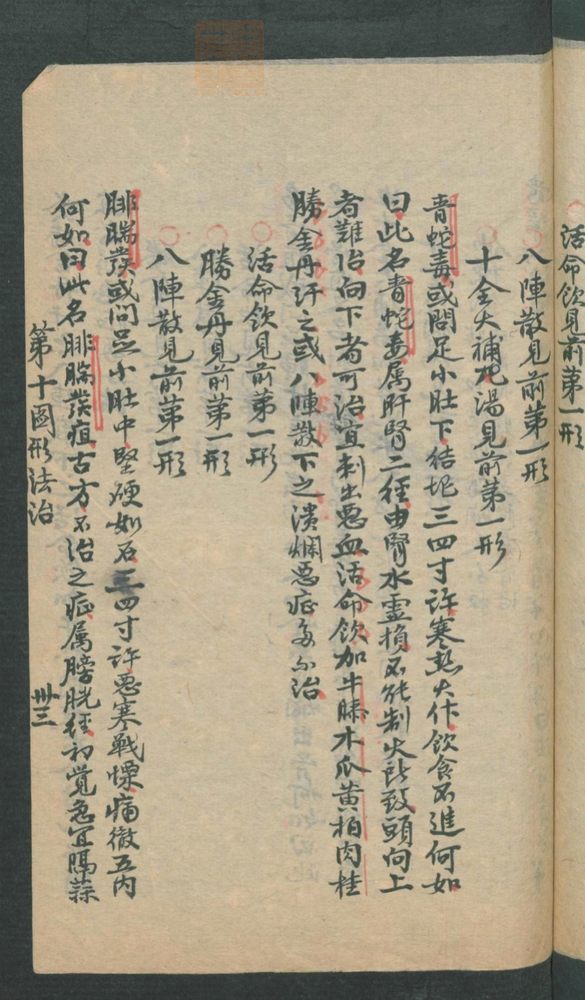 活命飲見前第一形
八陣散見前第一形
十全大補湯見前第一形
青蛇毒或問足小肚下結圮三四寸許寒熱大作飲食不進何如
曰此名青蛇毒属肝腎二徑由腎水虛損不能制火所致頭向上
者難治向下者可治宜刺出惡血活命飲加牛膝木瓜黄柏肉桂
勝金丹汗之或八陣散下之潰爛惡症多不治
活命飲見前第一形
勝金丹見前第一形
八陣散見前第一形
腓腨發或问足小肚中堅硬如石三四寸許惡寒戰慄痛徹五内
何如曰此名腓腨發疽古方不治之症属膀胱徑初覺急宜隔蒜
第十圖形法治
卅三